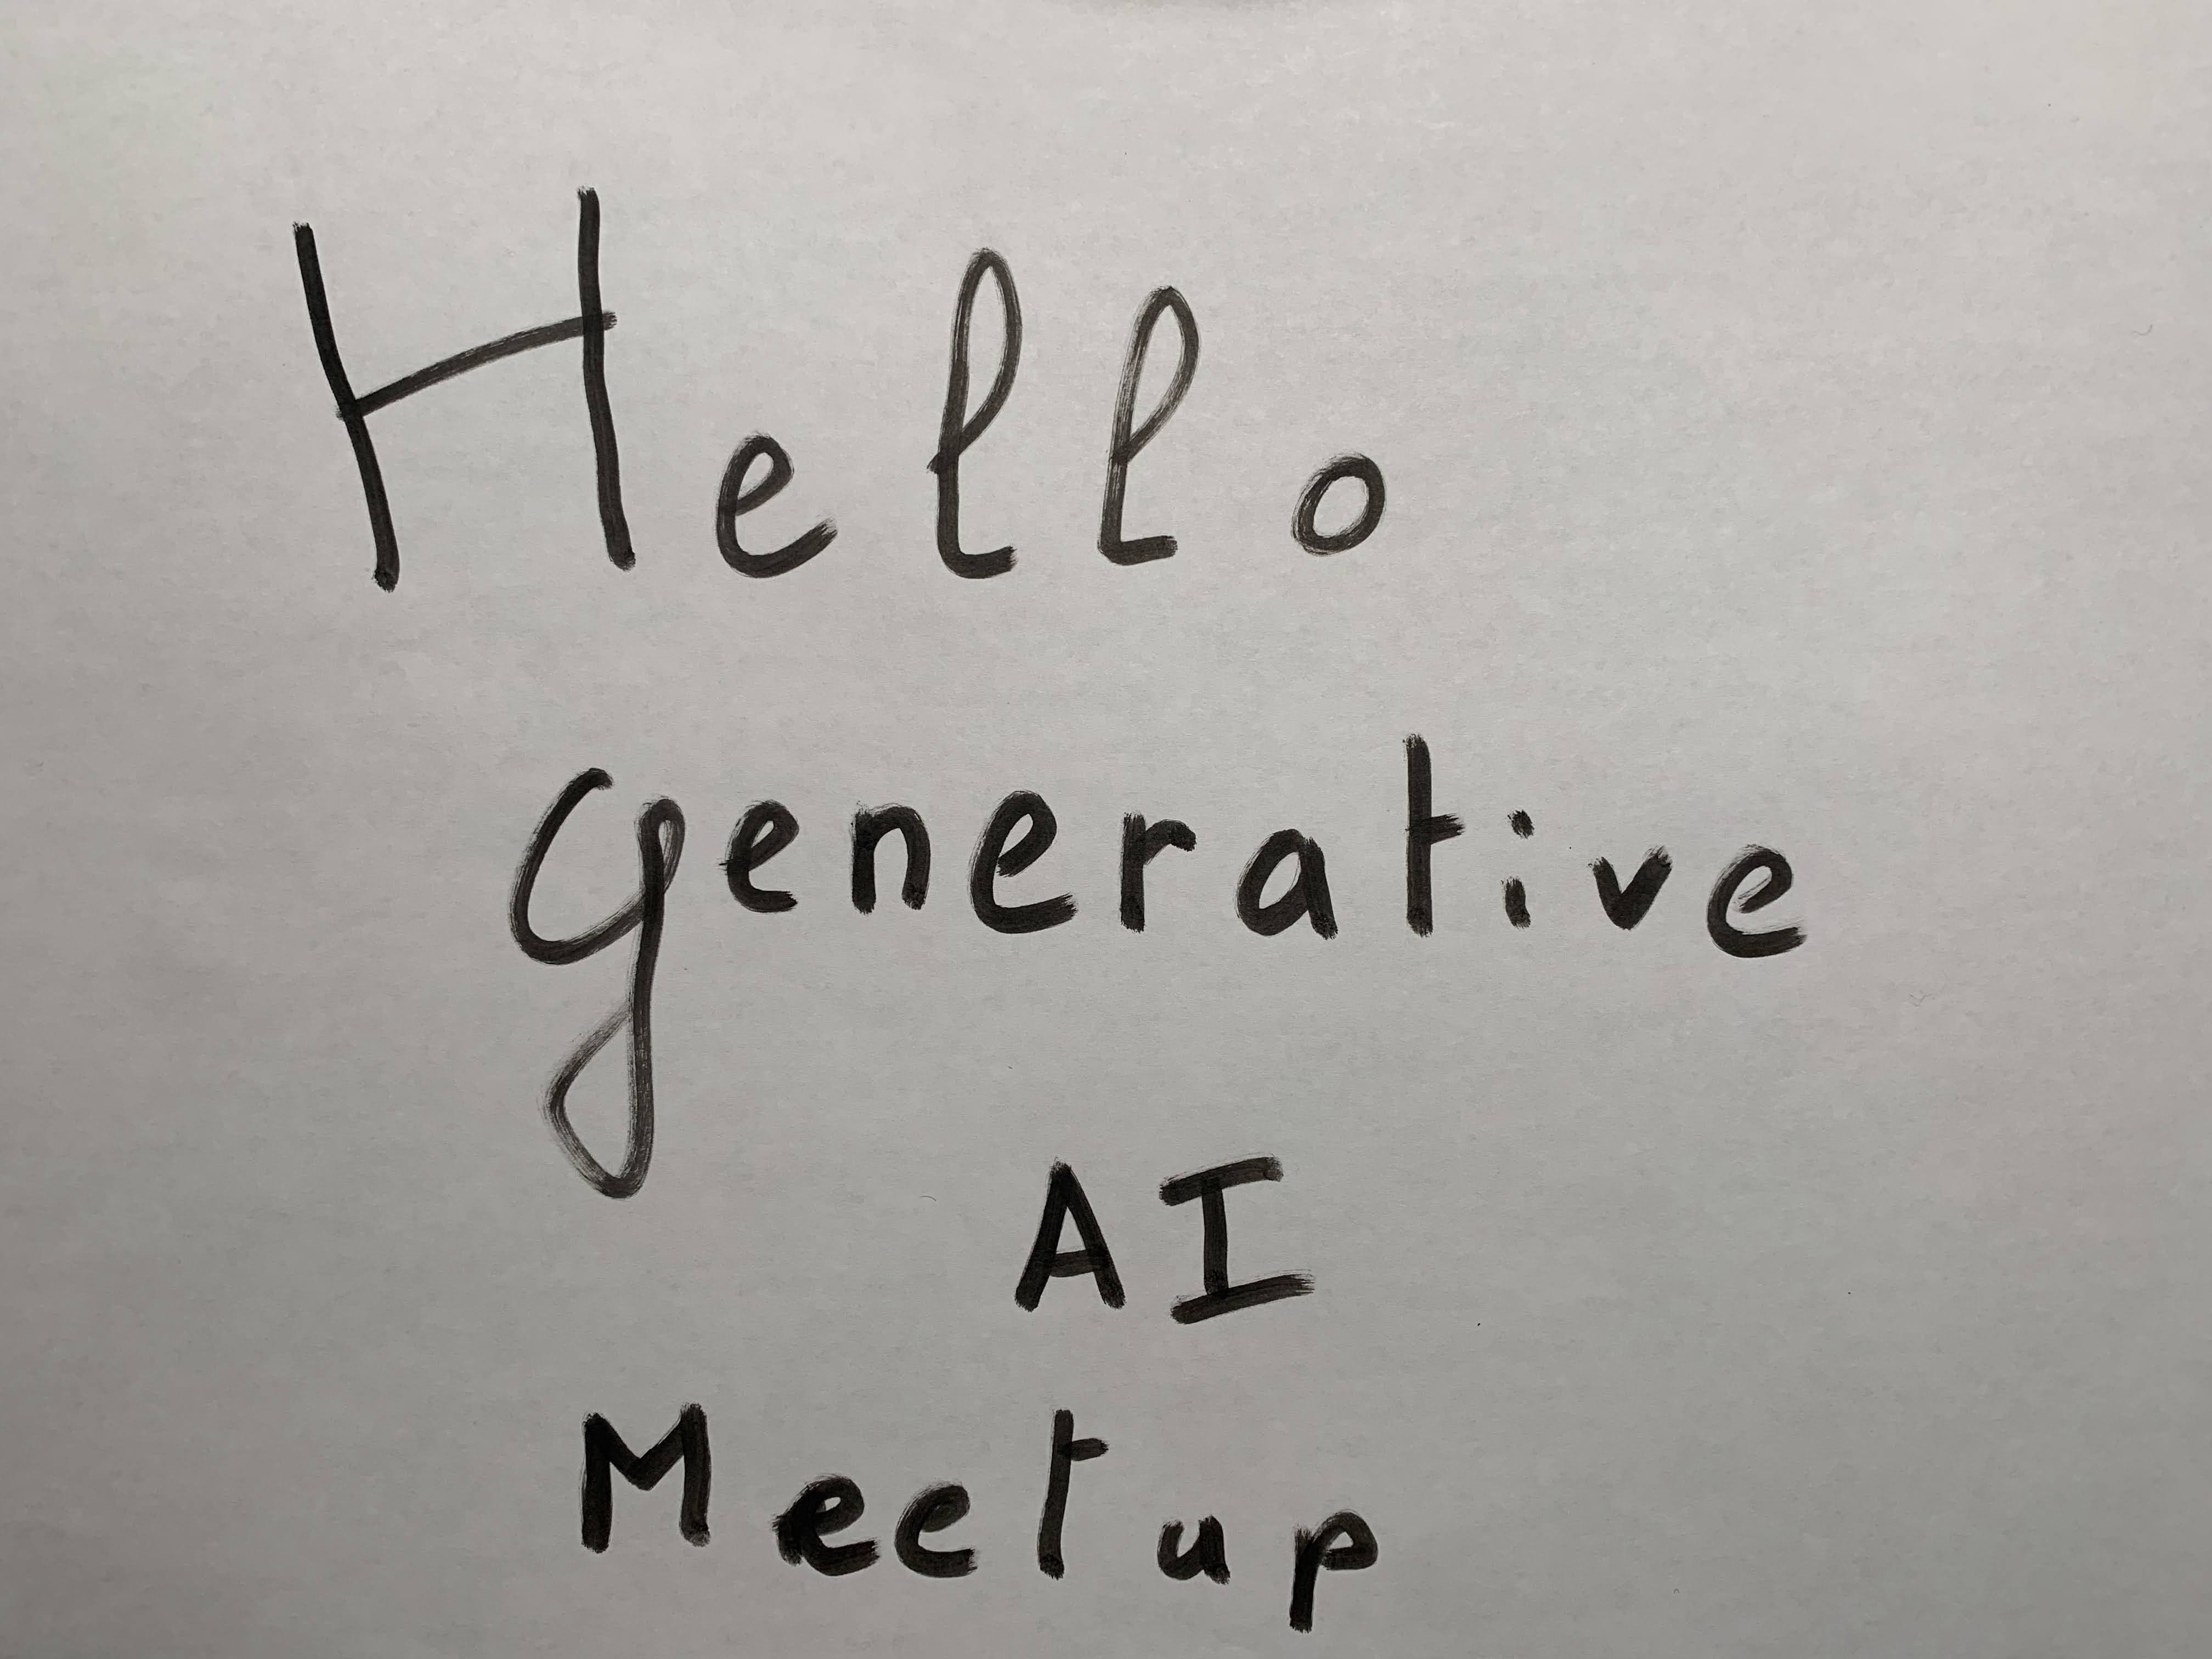 Hello
generative
AI
Meetup